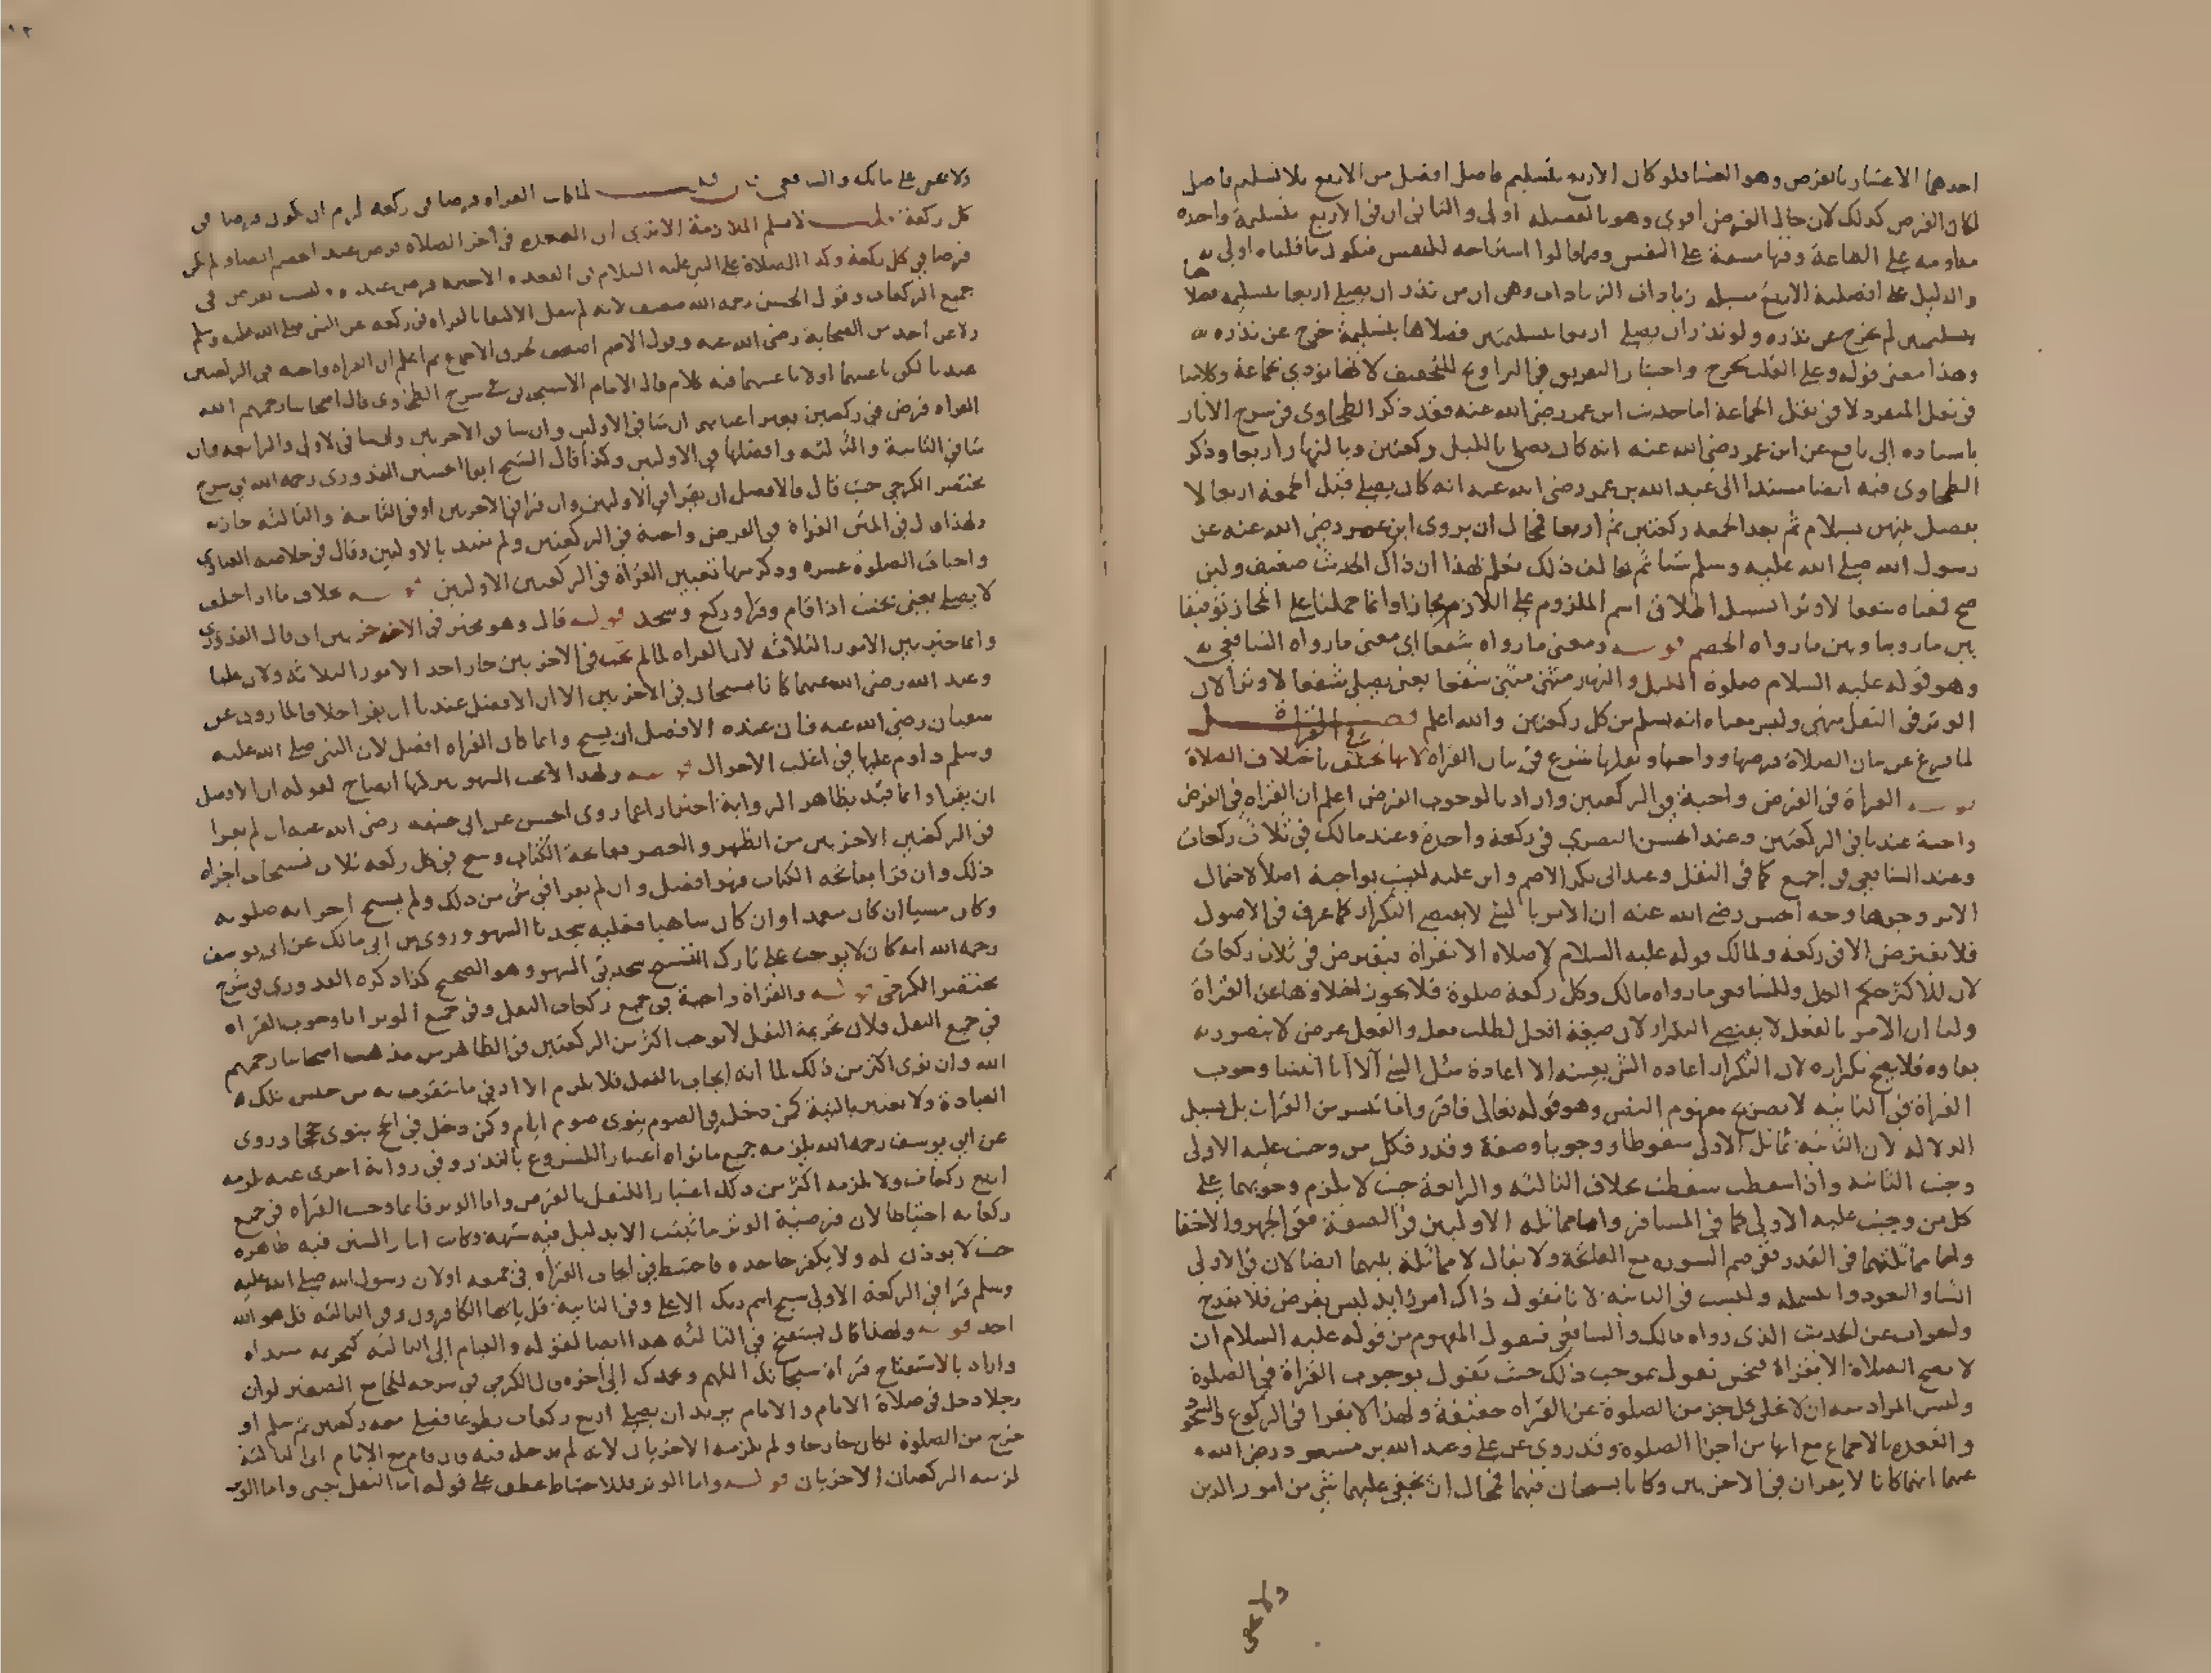 احدهما الاعتبار بالفرض وهو العشا فلو كان الاربع بتسليم فاصل افضل من الاربع بلا تسليم فاصل
لكان الفرض كذلك لان حال الفرض اقوى وهو بالفضيله اولى والثاني ان في الاربع بتسليمة واحده
مداومه على الطاعة وفيها مشقة على النفس وفيما قالوا استراحه للنفس فيكون ما قلناه اولى
والدليل على افضلية الاربع مسئله زيادات الزيادات وهي ان من نذر ان يصلي اربعا بتسليمه فصلا
بتسليمتين لم يخرج عن نذره ولو نذر ان يصلي اربعا بتسليمتين فصلاها بتسليمة خرج عن نذره
وهذا معنى قوله وعلى القلب يخرج واختيار التفريق في التراويح للتخفيف لانها تؤدي بجماعة وكلامنا
في نفل المنفرد لا في نفل الجماعة اما حديث ابن عمر رضي الله عنه فقد ذكر الطحاوي في شرح الاثار
باسناده الى نافع عن ابن عمر رضي الله عنه انه كان يصلي بالليل ركعتين وبالنهار اربعا وذكر
الطحاوي فيه ايضا مسندا الى عبد الله بن عمر رضي الله عنه انه كان يصلي قبل الجمعة اربعا لا
يفصل بينهن بسلام ثم بعد الجمعه ركعتين ثم اربعا فمحال ان يروي ابن عمر رضي الله عنه عن
رسول الله صلى الله عليه وسلم شيا ثم يخالف ذلك فعلم بهذا ان ذاك الحديث ضعيف ولئن
صح فمعناه شفعا لا وترا بسبيل اطلاق اسم الملزوم على اللازم مجازا وانما حملنا على المجاز توفيقا
بين ما روينا وبين ما رواه الخصم قوله ومعنى ما رواه شفعا اي معنى ما رواه الشافعي
وهو قوله عليه السلام صلوة الليل والنهار مثنى مثنى شفعا يعني يصلي شفعا لا وترا لان
الوتر في النفل منهي وليس معناه انه يسلم من كل ركعتين والله اعلم فصل في القراة
لما فرغ عن بيان الصلاة فرضها وواجبها ونفلها شرع في بيان القراة لانها تختلف باختلاف الصلاة
قوله القراة في الفرض واجبة في الركعتين واراد بالوجوب الفرض اعلم ان القراه في الفرض
واجبة عندنا في الركعتين وعند الحسن البصري في ركعة واحدة وعند مالك في ثلاث ركعات
وعند الشافعي في الجميع كما في النفل وعند ابي بكر الاصم وابن عليه ليست بواجبة اصلا لاحتمال
الامر وجوها وجه الحسن رضي الله عنه ان الامر بالشئ لا يقتضي التكرار كما عرف في الاصول
فلا يفترض الا في ركعة ولمالك قوله عليه السلام لا صلاه الا بقراة فيفترض في ثلاث ركعات
لان للاكثر حكم الكل وللشافعي ما رواه مالك وكل ركعة صلوة فلا يجوز اخلاوها عن القراة
ولنا ان الامر بالفعل لا يقتضي التكرار لان صيغة افعل لطلب فعل والفعل عرض لا يتصور
بقاوه فلا يصح تكراره لان التكرار اعاده الشئ بعينه لا اعادة مثل الشئ الا انا اثبتنا وجوب
القراة في الثانيه لا بصريح مفهوم النص وهو قوله تعالى فاقروا ما تيسر من القران بل بسبيل
الدلاله لان الثانية تماثل الاولى سقوطا ووجوبا وصفة وقدر فكل من وجبت عليه الاولى
وجبت الثانيه واذا سقطت سقطت بخلاف الثالثه والرابعة حيث لا يلزم وجوبهما على
كل من وجبت عليه الاولى كما في المسافر واما مماثله الاوليين في الصفة ففي الجهر والاخفا
واما مماثلتهما في القدر ففي ضم السوره مع الفاتحة ولا يقال لا مماثلة بينهما ايضا لان في الاولى
الثنا والتعوذ والبسمله وليست في الثانية لانا نقول ذاك امر زايد ليس بفرض فلا يقدح
والجواب عن الحديث الذي رواه مالك والشافعي فنقول المفهوم من قوله عليه السلام ان
لا يصح الصلاة الا بقراة فنحن نقول بموجب ذلك حيث نقول بوجوب القراة في الصلوة
وليس المراد منه ان لا يخلى كل جز من الصلوة عن القراه حقيقة ولهذا لا يقرا في الركوع والسجود
والقعده بالاجماع مع انها من اجزا الصلوة وقد روي عن علي وعبد الله بن مسعود رضي الله
عنهما انهما كانا لا يقران في الاخريين وكانا يسبحان فيهما فمحال ان يخفى عليهما شي من امور الدين
ولا يخفى
١٢
ولا يخفى على مالك والشافعي لما كانت القراه فرضا في ركعه لزم ان تكون فرضا في
كل ركعة قلت لا نسلم الملازمة الا ترى ان القعده في اخر الصلاه فرض عند الخصم ايضا ولم تكن
فرضا في كل ركعة وكذا الصلاة على النبي عليه السلام في القعده الاخيره فرض عنده وليست بفرض في
جميع الركعات وقول الحسن رحمه الله ضعيف لانه لم ينقل الاكتفا بالقراه في ركعه عن النبي صلى الله عليه وسلم
ولا عن احد من الصحابة رضي الله عنه وقول الاصم اضعف لخرق الاجماع ثم اعلم ان القراه واجبه في الركعتين
عندنا لكن باعيانهما او لا باعيانهما فيه كلام قال الامام الاسبيجابي في شرح الطحاوي قال اصحابنا رحمهم الله
القراه فرض في ركعتين بغير اعيانهما ان شا في الاوليين وان شا في الاخريين وان شا في الاولى والرابعه وان
شا في الثانية والثالثه وافضلها في الاوليين وكذا قال الشيخ ابو الحسين القدوري رحمه الله في شرح
مختصر الكرخي حيث قال والافضل ان يقرا في الاوليين وان قرا في الاخريين او في الثانية والثالثه جازت
ولهذا قال في المتن القراة في الفرض واجبة في الركعتين ولم يقيد بالاوليين وقال في خلاصه الفتاوي
واجبات الصلوة عشره وذكر منها تعيين القراة في الركعتين الاوليين قوله بخلاف ما اذا حلف
لا يصلي يعني يحنث اذا قام وقرا وركع وسجد قوله قال وهو مخير في الاخريين اي قال القدوري
وانما خير بين الامور الثلاثه لان القراه لما لم تجب في الاخريين جاز احد الامور الثلاثه ولان عليا
وعبد الله رضي الله عنهما كانا يسبحان في الاخريين الا ان الافضل عندنا ان يقرا خلافا لما روي عن
سفيان رضي الله عنه فان عنده الافضل ان يسبح وانما كان القراه افضل لان النبي صلى الله عليه
وسلم داوم عليها في اغلب الاحوال قوله ولهذا لا يجب السهو بتركها ايضاح لقوله ان الافضل
ان يقرا وانما قيد بظاهر الرواية احترازا عما روى الحسن عن ابي حنيفه رضي الله عنه ان لم يقرا
في الركعتين الاخريين من الظهر والعصر بفاتحة الكتاب وسبح في كل ركعه ثلاث تسبيحات اجزاه
ذلك وان قرا بفاتحه الكتاب فهو افضل وان لم يقرا في شئ من ذلك ولم يسبح اجزاته صلوته
وكان مسيا ان كان متعمدا وان كان ساهيا فعليه سجدتا السهو وروى ابن ابي مالك عن ابي يوسف
رحمه الله انه كان لا يوجب على تارك التسبيح سجدتي السهو وهو الصحيح كذا ذكره القدوري في شرح
مختصر الكرخي قوله والقراة واجبة في جميع ركعات النفل وفي جميع الوتر اما وجوب القراه
في جميع النفل فلان تحريمة النفل لا توجب اكثر من الركعتين في الظاهر من مذهب اصحابنا رحمهم
الله وان نوى اكثر من ذلك لما انه ايجاب بالفعل فلا يلزم الا ادنى ما يتقرب به من جنس تلك
العبادة ولا يعتبر بالنية كمن دخل في الصوم ينوي صوم ايام وكمن دخل في الحج ينوي حججا وروي
عن ابي يوسف رحمه الله يلزمه جميع ما نواه اعتبارا للشروع بالنذر وفي رواية اخرى عنه يلزمه
اربع ركعات ولا يلزمه اكثر من ذلك اعتبارا للنفل بالفرض واما الوتر فانما وجب القراه في جميع
ركعاته احتياطا لان فرضية الوتر ما ثبتت الا بدليل فيه شبهه وكانت اثار السنن فيه ظاهره
حيث لا يوذن له ولا يكفر جاحده فاحتيط في ايجاب القراه في جميعه او لان رسول الله صلى الله عليه
وسلم قرا في الركعة الاولى سبح اسم ربك الاعلى وفي الثانية قل يا ايها الكافرون وفي الثالثه قل هو الله
احد قوله ولهذا قال يستفتح في الثالثه هذا ايضاح لقوله والقيام الى الثالثه كتحريمه مبتداه
واراد بالاستفتاح قراة سبحانك اللهم وبحمدك الى اخره وقال الكرخي في شرحه للجامع الصغير لو ان
رجلا دخل في صلاة الامام والامام يريد ان يصلي اربع ركعات تطوعا فصلى معه ركعتين ثم سلم او
خرج من الصلوة لكان خارجا ولم يلزمه الاخريان لانه لم يدخل فيه وان قام مع الامام الى الثالثة
لزمته الركعتان الاخريان قوله واما الوتر فللاحتياط عطف على قوله اما النفل يعني واما الوتر